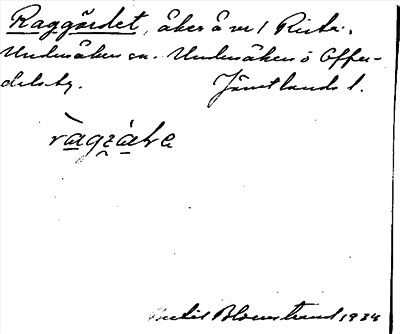 Raggärdet, åker å nr 1 Rista,
Undersåkers sn. Undersåkers o Offer-
dals tg. Jämtlands l.
Bertil Blomstrand 1934